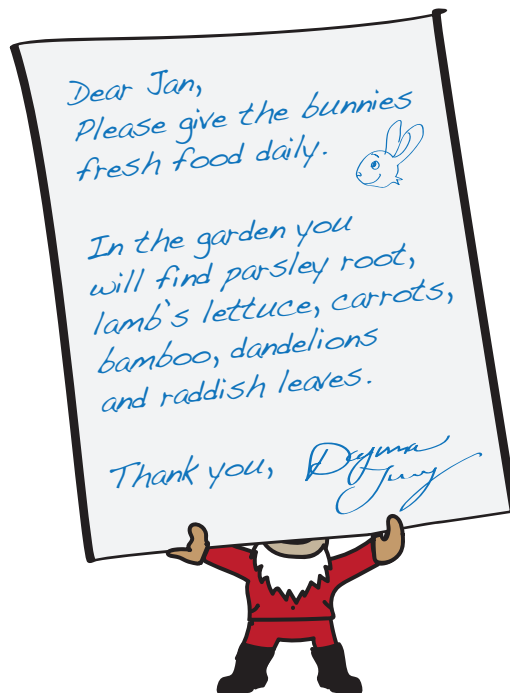 Dear Jan,
Please give the bunnies
fresh food daily.
In the garden you
will find parsley root,
lamb's lettuce, carrots,
bamboo, dandelions
and raddish leaves.
Thank you,